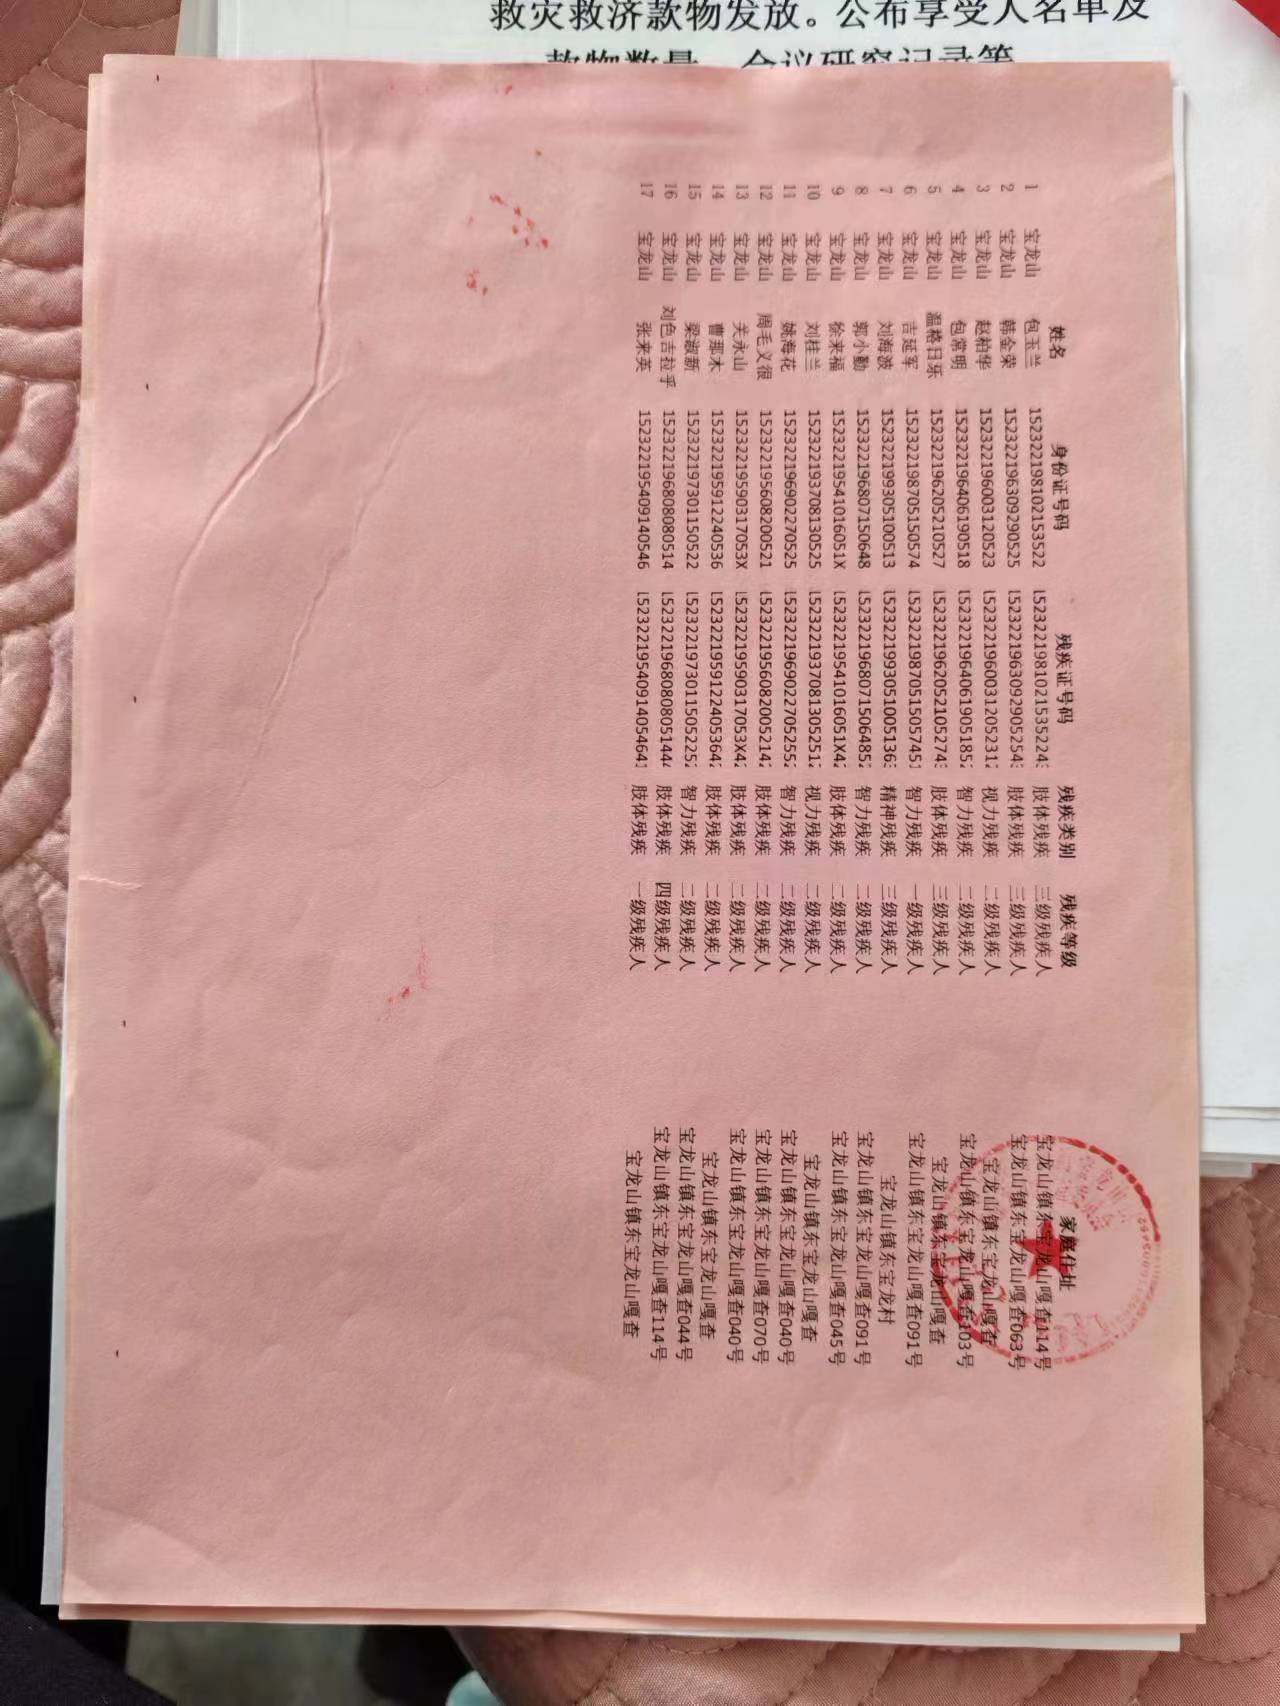 救灾救济款物发放。公布享受人名单及
款物数量、会议研究记录等
姓名 身份证号码 残疾证号码 残疾类别 残疾等级 家庭住址
1 宝龙山 包玉兰 152322198102153522 15232219810215352243 肢体残疾 三级残疾人 宝龙山镇东宝龙山嘎查114号
2 宝龙山 韩金荣 152322196309290525 1523221963092905254 肢体残疾 三级残疾人 宝龙山镇东宝龙山嘎查063号
3 宝龙山 赵柏华 152322196003120523 1523221960031205231 视力残疾 二级残疾人 宝龙山镇东宝龙山嘎查
4 宝龙山 包常明 152322196406190518 1523221964061905185 智力残疾 二级残疾人 宝龙山镇东宝龙山嘎查103号
5 宝龙山 温格日乐 152322196205210527 1523221962052105274 肢体残疾 三级残疾人 宝龙山镇东宝龙山嘎查
6 宝龙山 吉延军 152322198705150574 1523221987051505745 智力残疾 一级残疾人 宝龙山镇东宝龙山嘎查091号
7 宝龙山 刘海波 152322199305100513 1523221993051005136 精神残疾 三级残疾人 宝龙山镇东宝龙村
8 宝龙山 郭小勤 152322196807150648 1523221968071506485 智力残疾 二级残疾人 宝龙山镇东宝龙山嘎查091号
9 宝龙山 徐来福 15232219541016051X 15232219541016051X4 肢体残疾 二级残疾人 宝龙山镇东宝龙山嘎查045号
10 宝龙山 刘桂兰 152322193708130525 1523221937081305251 视力残疾 二级残疾人 宝龙山镇东宝龙山嘎查
11 宝龙山 姚海花 152322196902270525 1523221969022705255 智力残疾 二级残疾人 宝龙山镇东宝龙山嘎查040号
12 宝龙山 周毛义很 152322195608200521 1523221956082005214 肢体残疾 二级残疾人 宝龙山镇东宝龙山嘎查070号
13 宝龙山 关永山 15232219590317053X 15232219590317053X4 肢体残疾 二级残疾人 宝龙山镇东宝龙山嘎查040号
14 宝龙山 曹那木 152322195912240536 1523221959122405364 肢体残疾 二级残疾人 宝龙山镇东宝龙山嘎查
15 宝龙山 梁淑新 152322197301150522 1523221973011505225 智力残疾 二级残疾人 宝龙山镇东宝龙山嘎查044号
16 宝龙山 刘色吉拉乎 152322196808080514 1523221968080805144 肢体残疾 四级残疾人 宝龙山镇东宝龙山嘎查114号
17 宝龙山 张来英 152322195409140546 1523221954091405464 肢体残疾 一级残疾人 宝龙山镇东宝龙山嘎查